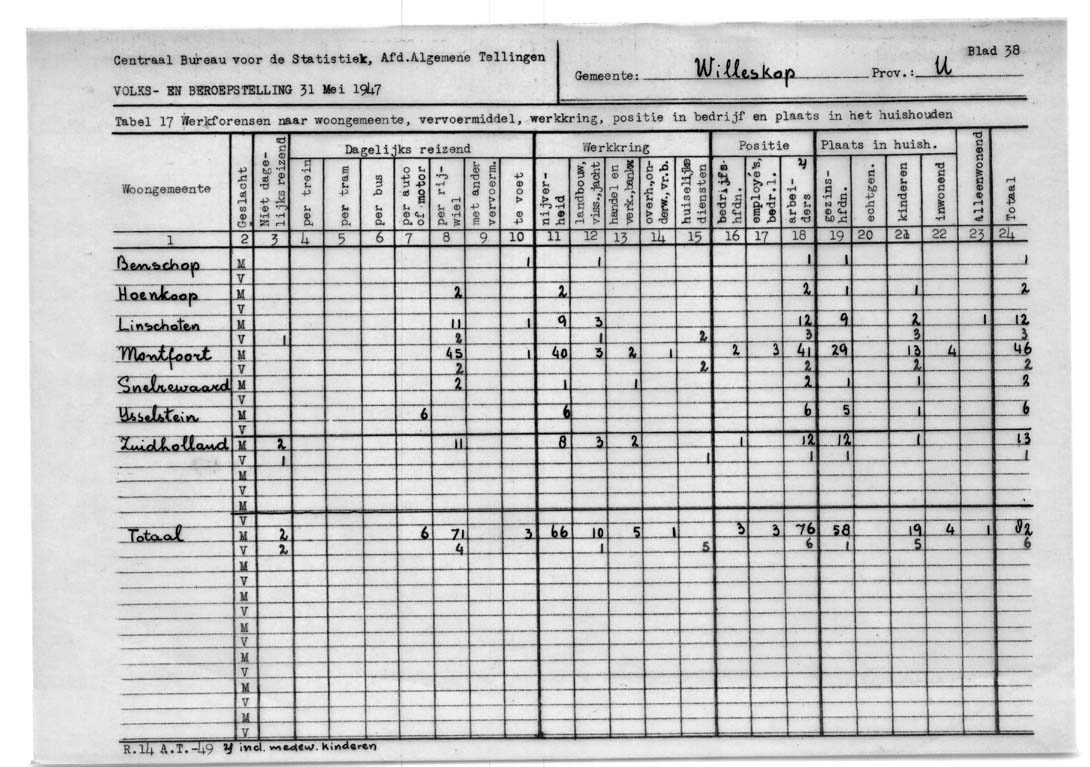 Blad 38
Centraal Bureau voor de Statistiek, Afd.Algemene Tellingen
Gemeente: Willeskop Prov.: U
VOLKS- EN BEROEPSTELLING 31 Mei 1947
Tabel 17 Werkforensen naar woongemeente, vervoermiddel, werkkring, positie in bedrijf en plaats in het huishouden
Woongemeente
Geslacht
Niet dage-
lijks reizend
Dagelijks reizend
per trein
per tram
per bus
per auto
of motor
per rij-
wiel
met ander
vervoerm.
te voet
Werkkring
nijver-
heid
landbouw,
viss., jacht
handel en
verk., bankw
overh., on-
derw., vr.b.
huiselijke
diensten
Positie
bedrijfs-
hfdn.
employé's,
bedr.l.
arbei- y
ders
Plaats in huish.
gezins-
hfdn.
echtgen.
kinderen
inwonend
Alleenwonend
Totaal
1 2 3 4 5 6 7 8 9 10 11 12 13 14 15 16 17 18 19 20 21 22 23 24
Benschop M 1 1 1 1 1
V
Hoenkoop M 2 2 2 1 1 2
V
Linschoten M 11 1 9 3 12 9 2 1 12
V 1 2 1 2 3 3 3
Montfoort M 45 1 40 3 2 1 2 3 41 29 13 4 46
V 2 2 2 2 2
Snelrewaard M 2 1 1 2 1 1 2
V
IJsselstein M 6 6 6 5 1 6
V
Zuidholland M 2 11 8 3 2 1 12 12 1 13
V 1 1 1 1 1
M
V
M
V
Totaal M 2 6 71 3 66 10 5 1 3 3 76 58 19 4 1 82
V 2 4 1 5 6 1 5 6
M
V
M
V
M
V
M
V
M
V
M
V
R.14 A.T.-49 y incl. medew. kinderen